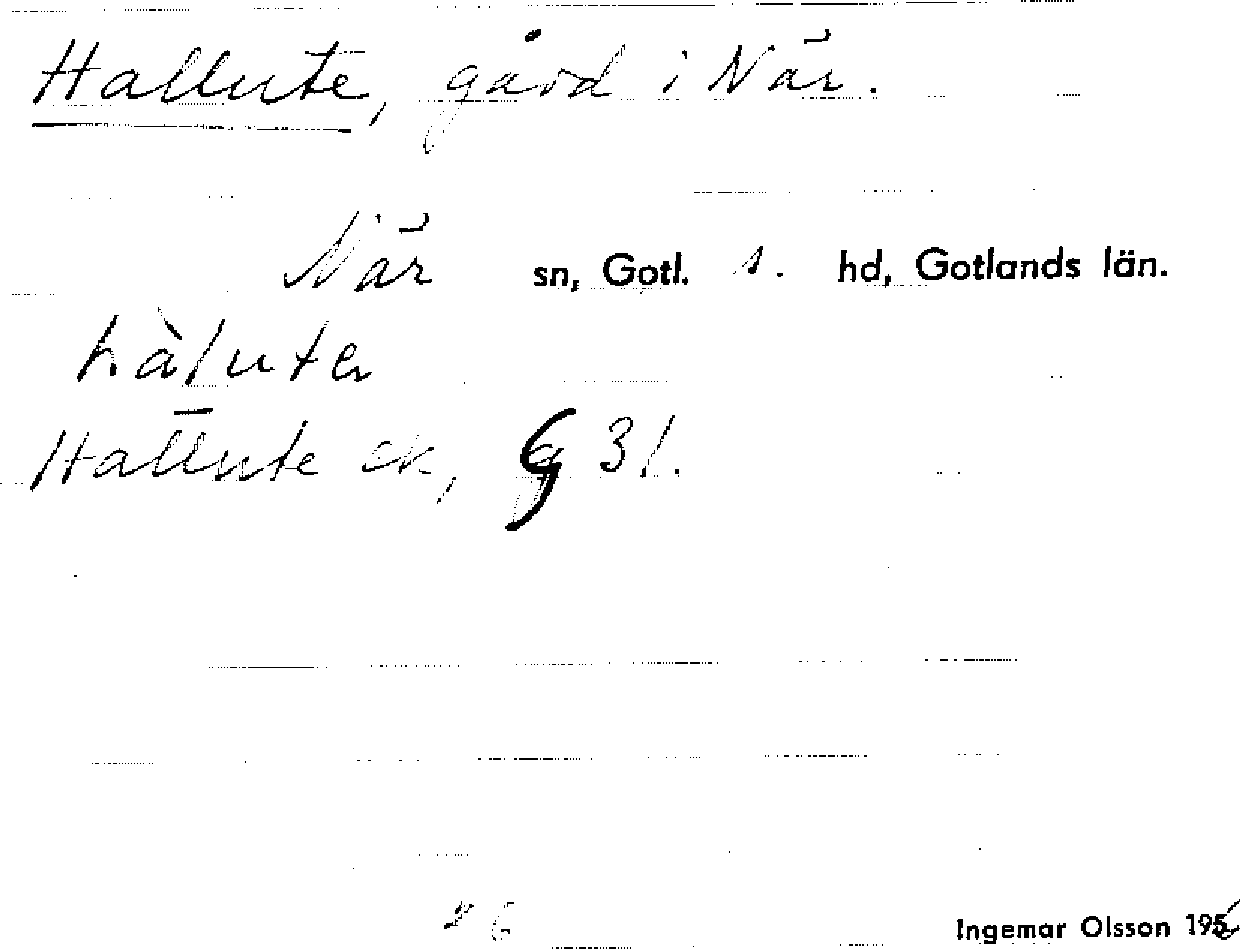 Hallute, gård i När.
När sn, Gotl. s. hd, Gotlands län.
hàluter
Hallute ek, G 31.
Ingemar Olsson 195